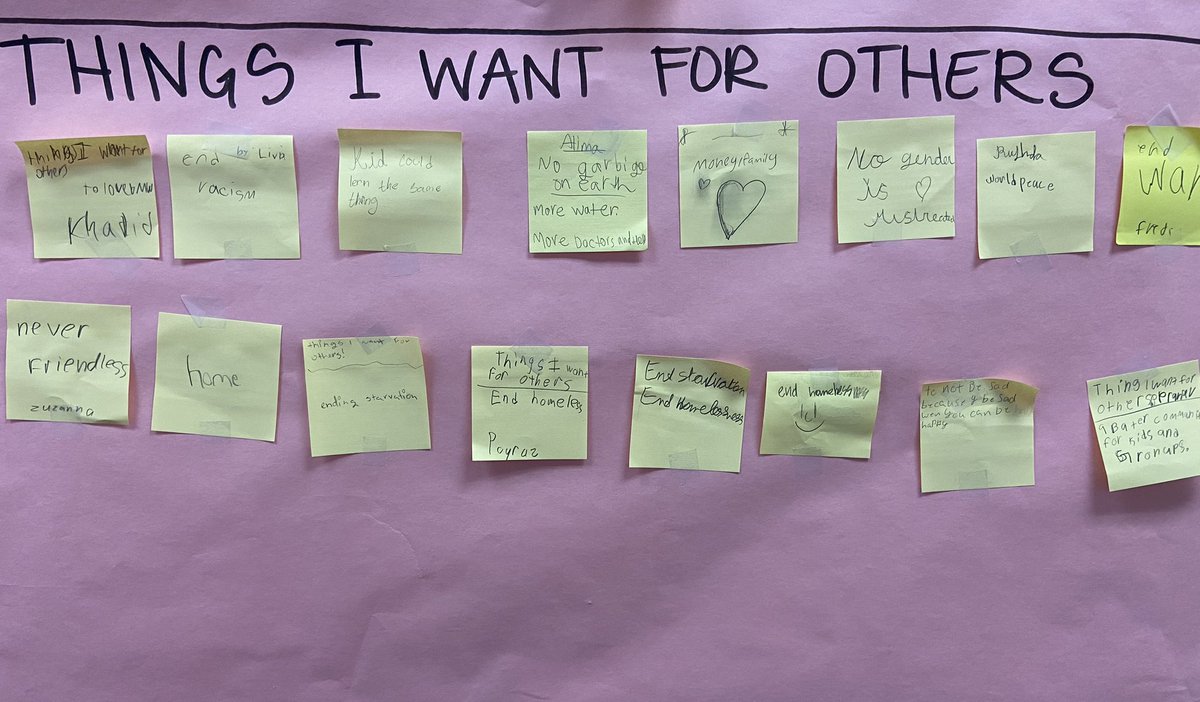 THINGS I WANT FOR OTHERS
things I want for
others
to love
Khalid
end by Livi
racism
Kid could
lern the same
thing
Alima
No garbige
on Earth
More water.
More Doctors and
money/family
No gender
is
Mistreated
world peace
end
War
fred
never
Friendless
zuzanna
home
things I want for
others!
ending starvation
Things I want
for others
End homeless
Poyraz
End starvation
End Homelessness
end homelessness
to not Be Sad
because y be Sad
wen you can be
happy
Thing I want for
others
a Bater
for kids and
Gronups.